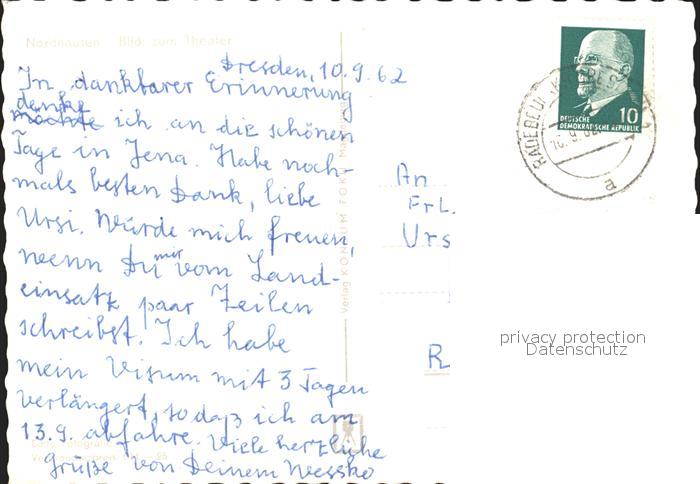 Nordhausen Blick zum Theater
Dresden, 10.9.62
In dankbarer Erinnerung
denke
möchte ich an die schönen
Tage in Jena. Habe noch-
mals besten Dank, liebe
Ursi. Würde mich freuen,
wenn Du mir vom Land-
einsatz paar Zeilen
schreibst. Ich habe
mein Visum mit 3 Tagen
verlängert, so daß ich am
13.9. abfahre. Viele herzliche
Grüße von Deinem Wessko
Verlag KONSUM FOTO
An
Frl.
Urs
R
10
DEUTSCHE
DEMOKRATISCHE REPUBLIK
RADEBEUL
a
privacy protection
Datenschutz